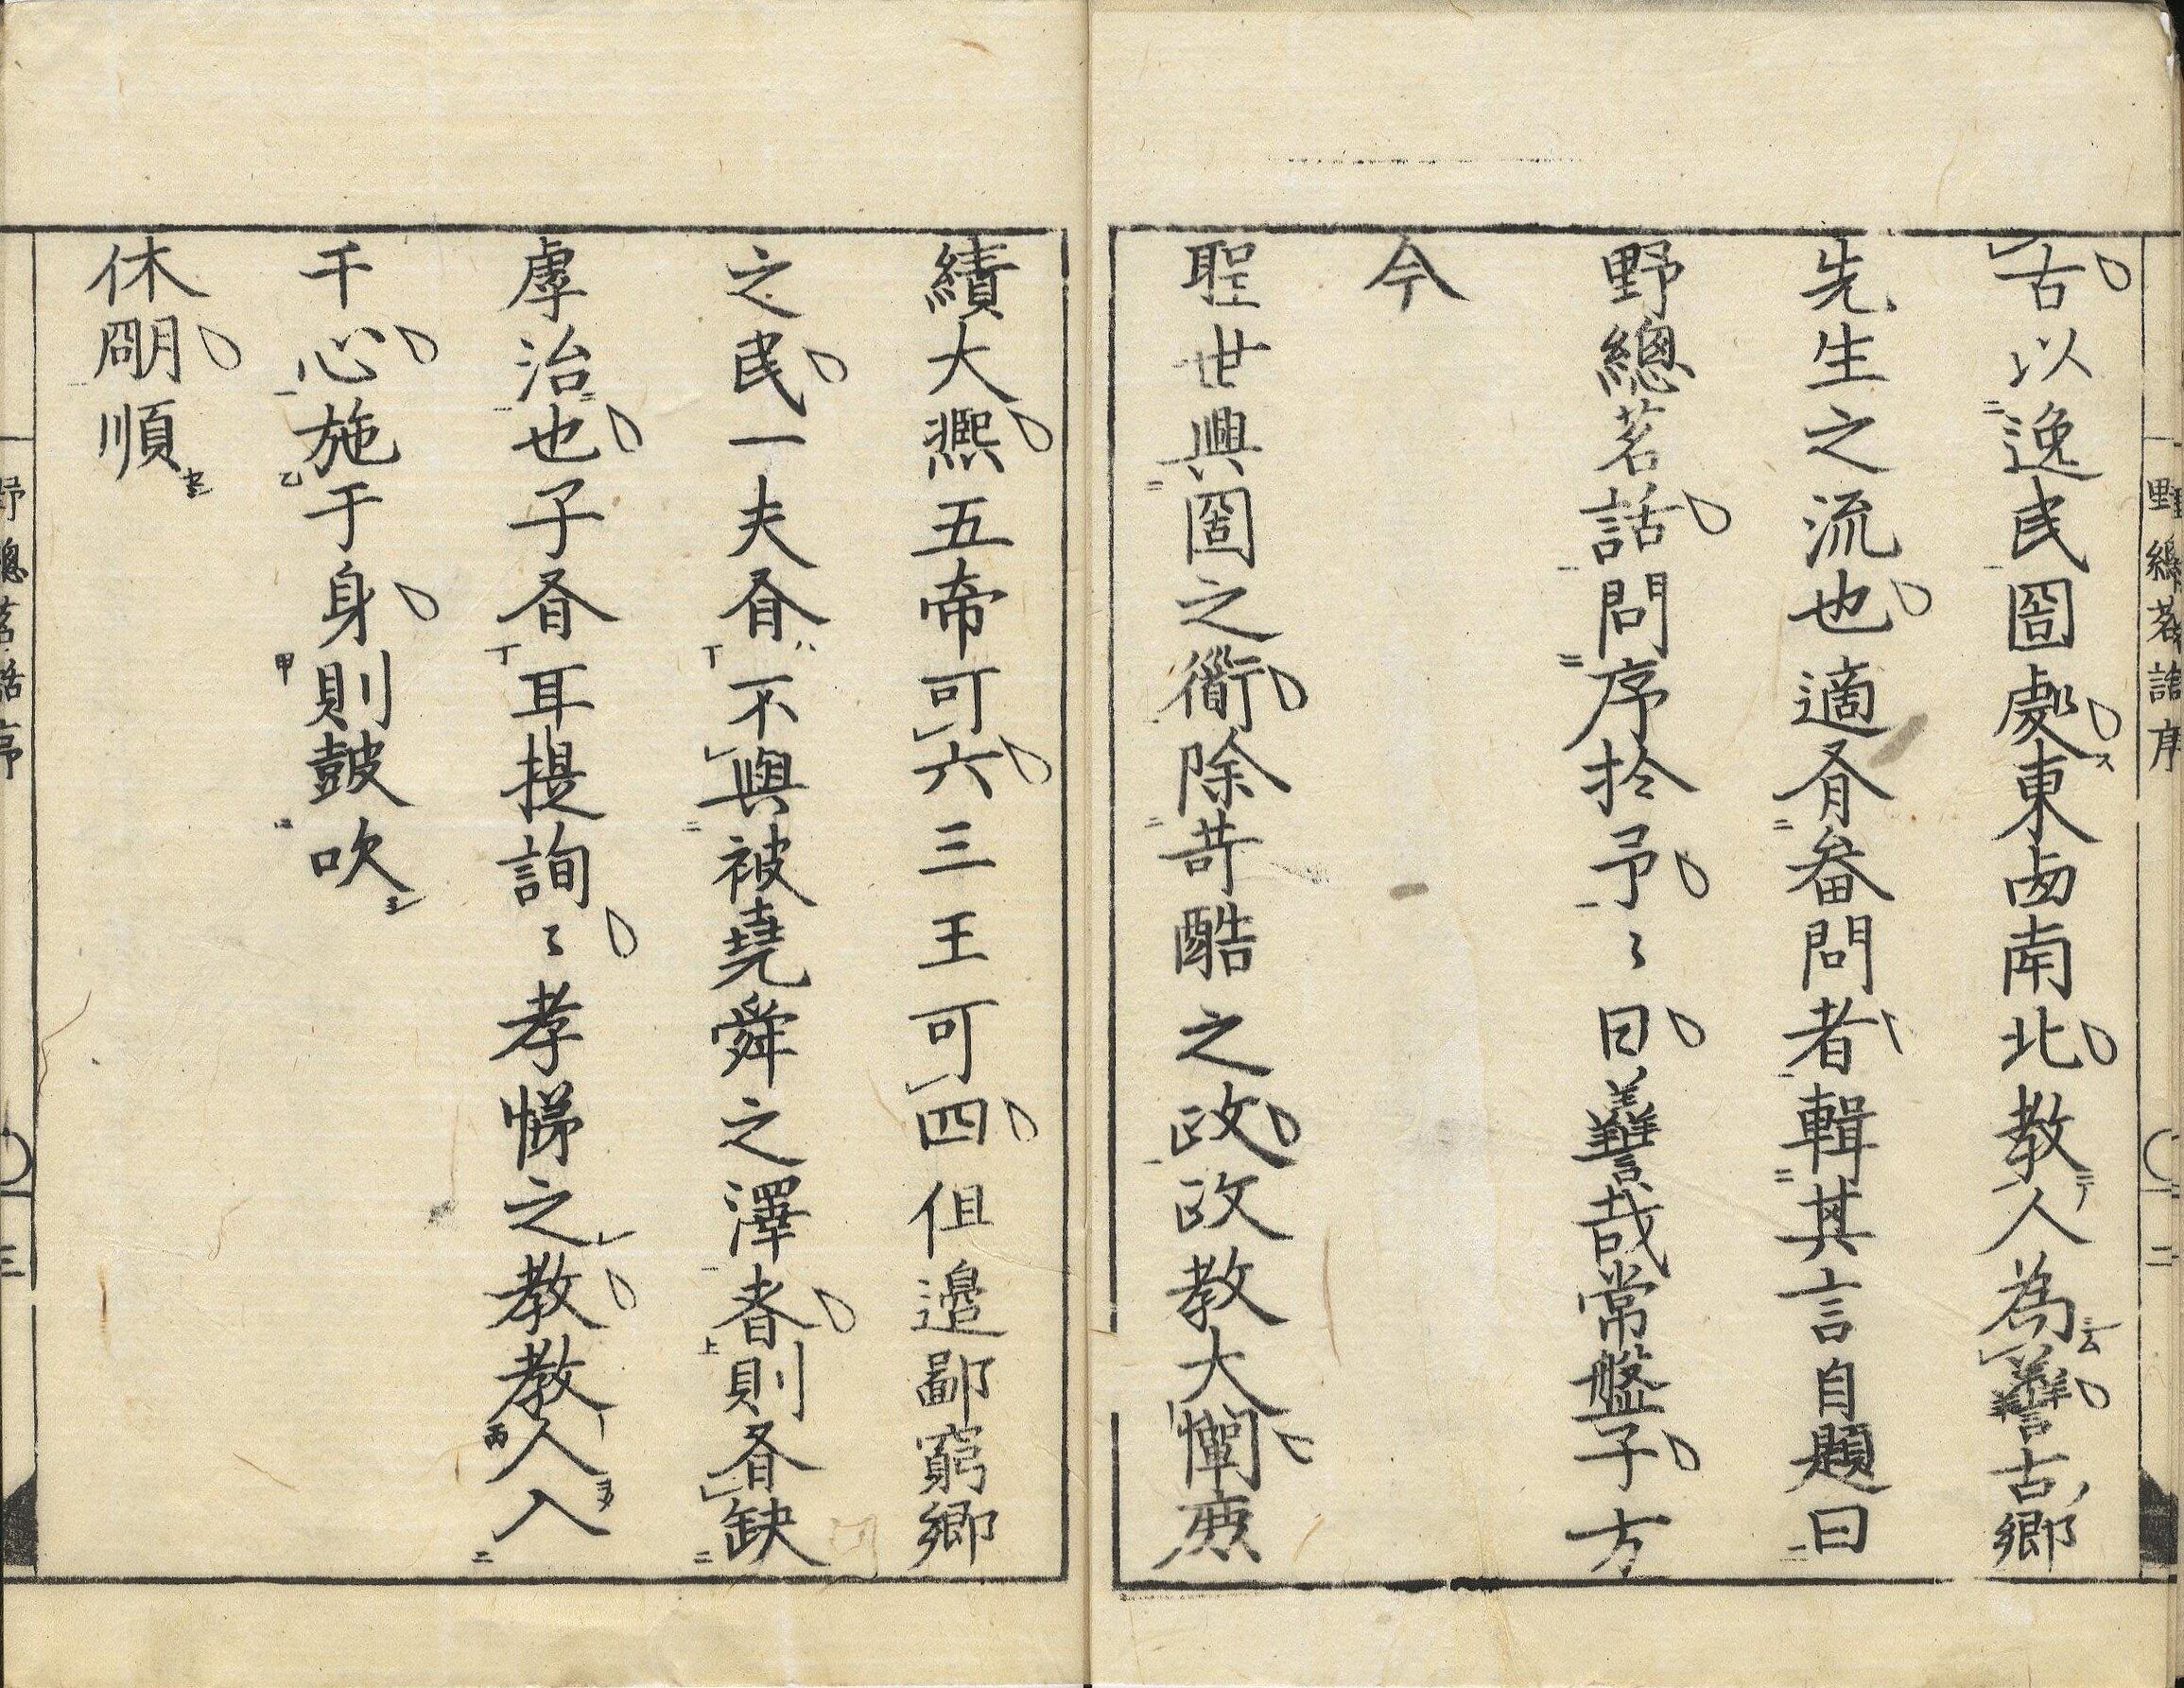 野總茗話序
二
古以逸民圄處東卥南北教人為譱古鄉
先生之流也適㕛畚問者輯其言自題曰
野總茗話問序扵予〻曰譱哉常盤子方
今
聖世興圄之衜除苛酷之政政教大憚庶
績大熈五帝可六三王可四伹邉鄙窮鄉
之民一夫㕛不與被堯舜之澤者則㕛缺
虖治也子㕛耳提詢〻孝悌之教教人入
千心施于身則皷吹
休朙順
野總茗話序
三